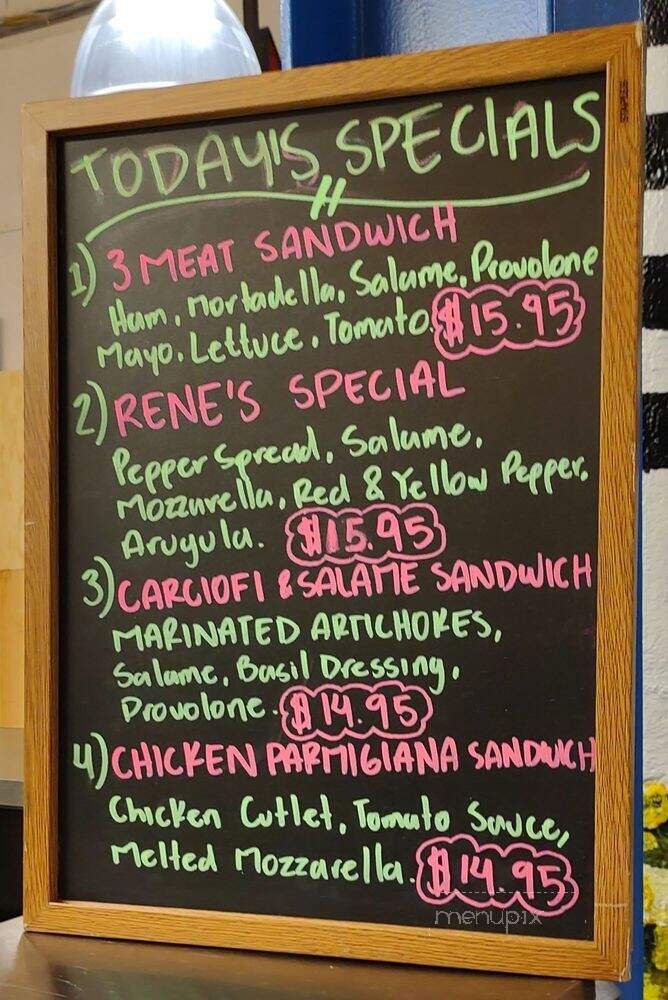 TODAY'S SPECIALS
1) 3 MEAT SANDWICH
Ham, Mortadella, Salame, Provolone
Mayo, Lettuce, Tomato. $15.95
2) RENE'S SPECIAL
Pepper Spread, Salame,
Mozzarella, Red & Yellow Pepper,
Arugula. $15.95
3) CARCIOFI & SALAME SANDWICH
MARINATED ARTICHOKES,
Salame, Basil Dressing,
Provolone. $14.95
4) CHICKEN PARMIGIANA SANDWICH
Chicken Cutlet, Tomato Sauce,
Melted Mozzarella. $14.95
menupix